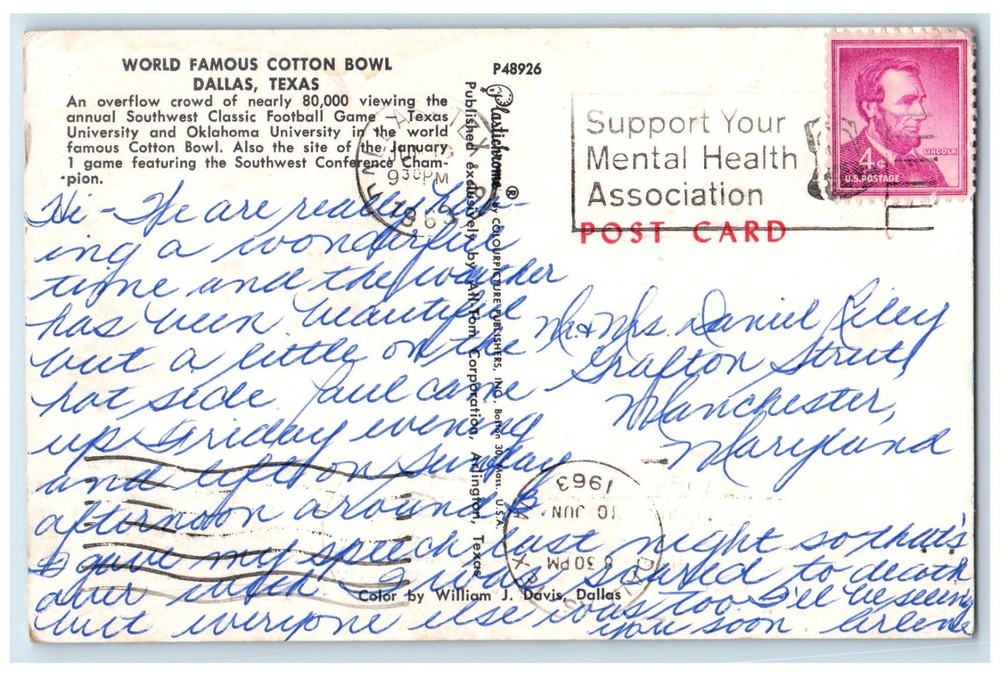 WORLD FAMOUS COTTON BOWL
DALLAS, TEXAS
An overflow crowd of nearly 80,000 viewing the
annual Southwest Classic Football Game — Texas
University and Oklahoma University in the world
famous Cotton Bowl. Also the site of the January
1 game featuring the Southwest Conference Cham-
pion.
P48926
Plastichrome ® by COLOURPICTURE PUBLISHERS, INC., Boston 30, Mass. U.S.A.
Published exclusively by All-Tom Corporation, Arlington, Texas
Support Your
Mental Health
Association
LINCOLN
4¢
U.S. POSTAGE
POST CARD
TEX
930PM
1963
Hi - We are really hav-
ing a wonderful
time and the weather
has been beautiful
but a little on the
hot side. Paul came
up Friday evening
and left on Sunday
afternoon around 3.
I gave my speech last night so that's
over with. I was scared to death
but everyone else was too. I'll be seeing
you soon. Arlene
Mr & Mrs. Daniel Riley
Grafton Street
Manchester,
Maryland
DALLAS TEX
8 30 PM
10 JUN
1963
Color by William J. Davis, Dallas